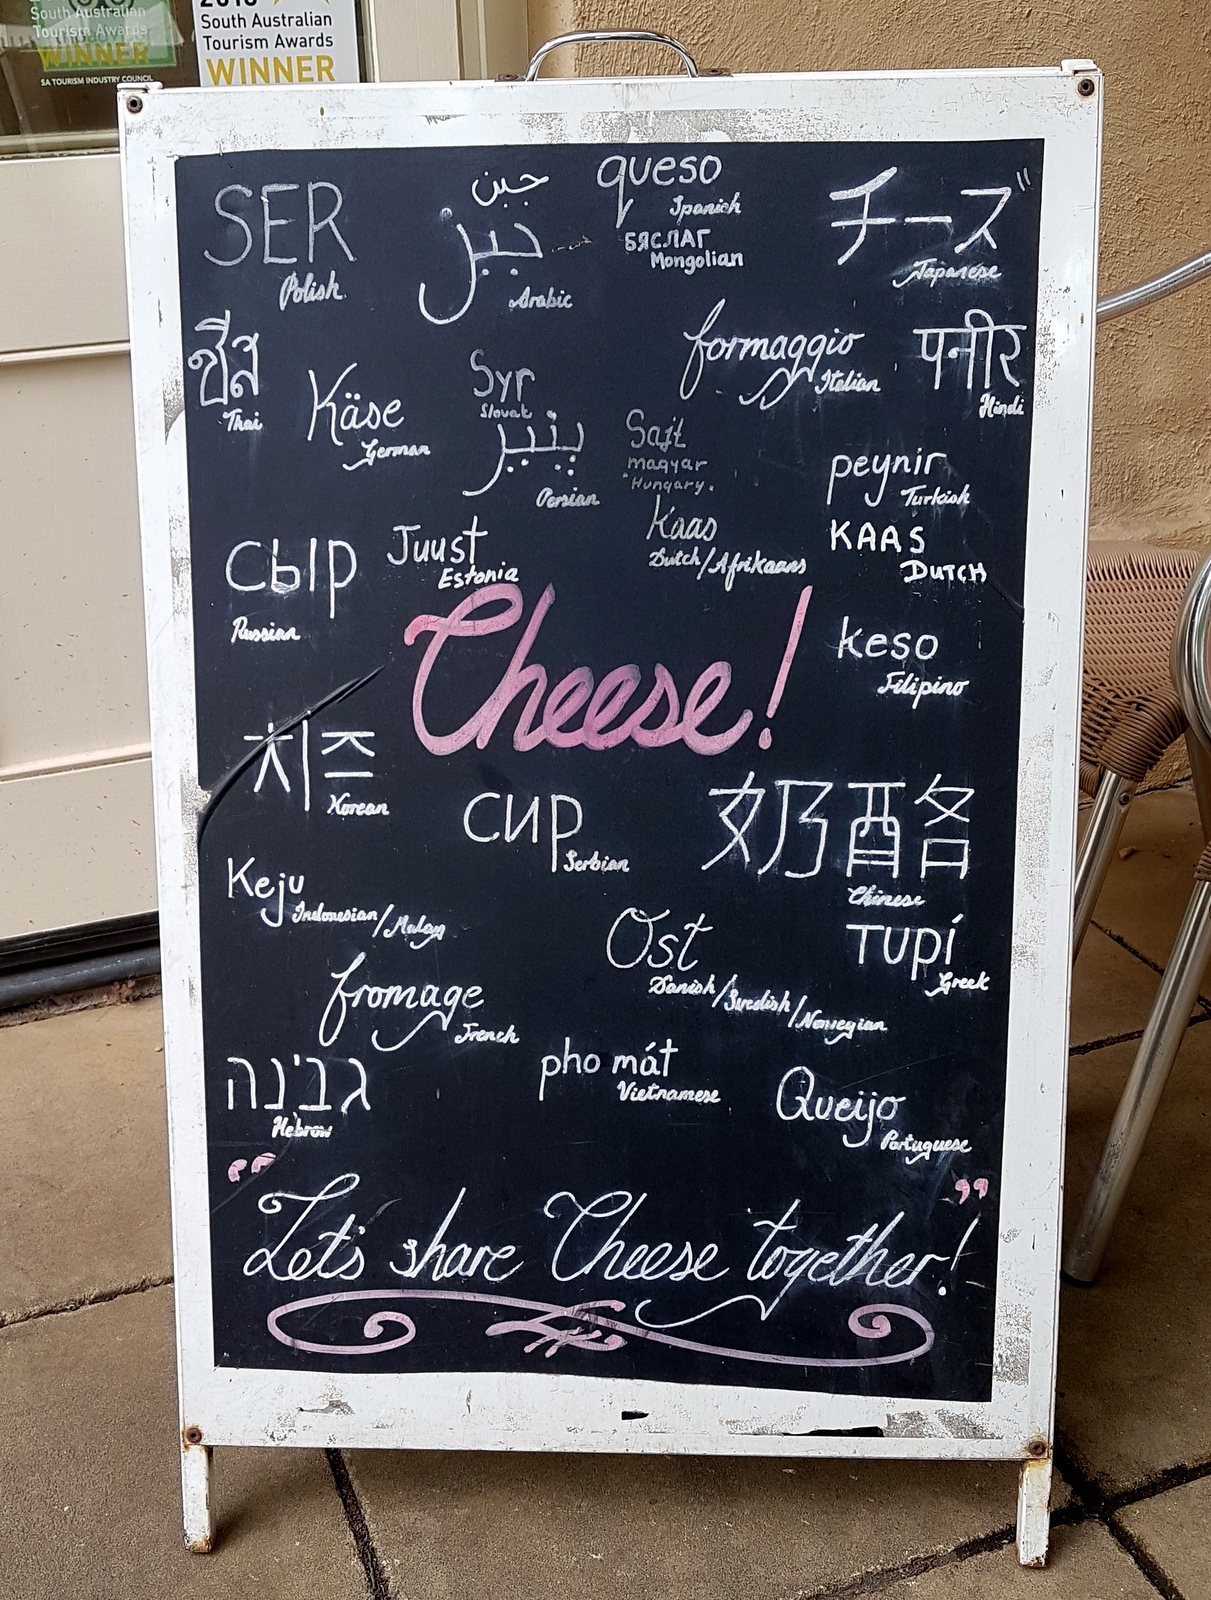 South Australian
Tourism Awards
WINNER
SA TOURISM INDUSTRY COUNCIL
South Australian
Tourism Awards
WINNER
SER
Polish
جبن
جبز
Arabic
queso
Spanish
БЯСЛАГ
Mongolian
チーズ
Japanese
ชีส
Thai
Käse
German
Syr
Slovak
formaggio
Italian
पनीर
Hindi
پنیر
Persian
Sajt
magyar
"Hungary.
peynir
Turkish
Kaas
Dutch/Afrikaans
KAAS
DUTCH
сыр
Russian
Juust
Estonia
Cheese!
keso
Filipino
치즈
Korean
сир
Serbian
奶酪
Chinese
Keju
Indonesian/Malay
Ost
Danish/Swedish/Norwegian
τυρί
Greek
fromage
French
גבינה
Hebrew
pho mát
Vietnamese
Queijo
Portuguese
"Let's share Cheese together!"